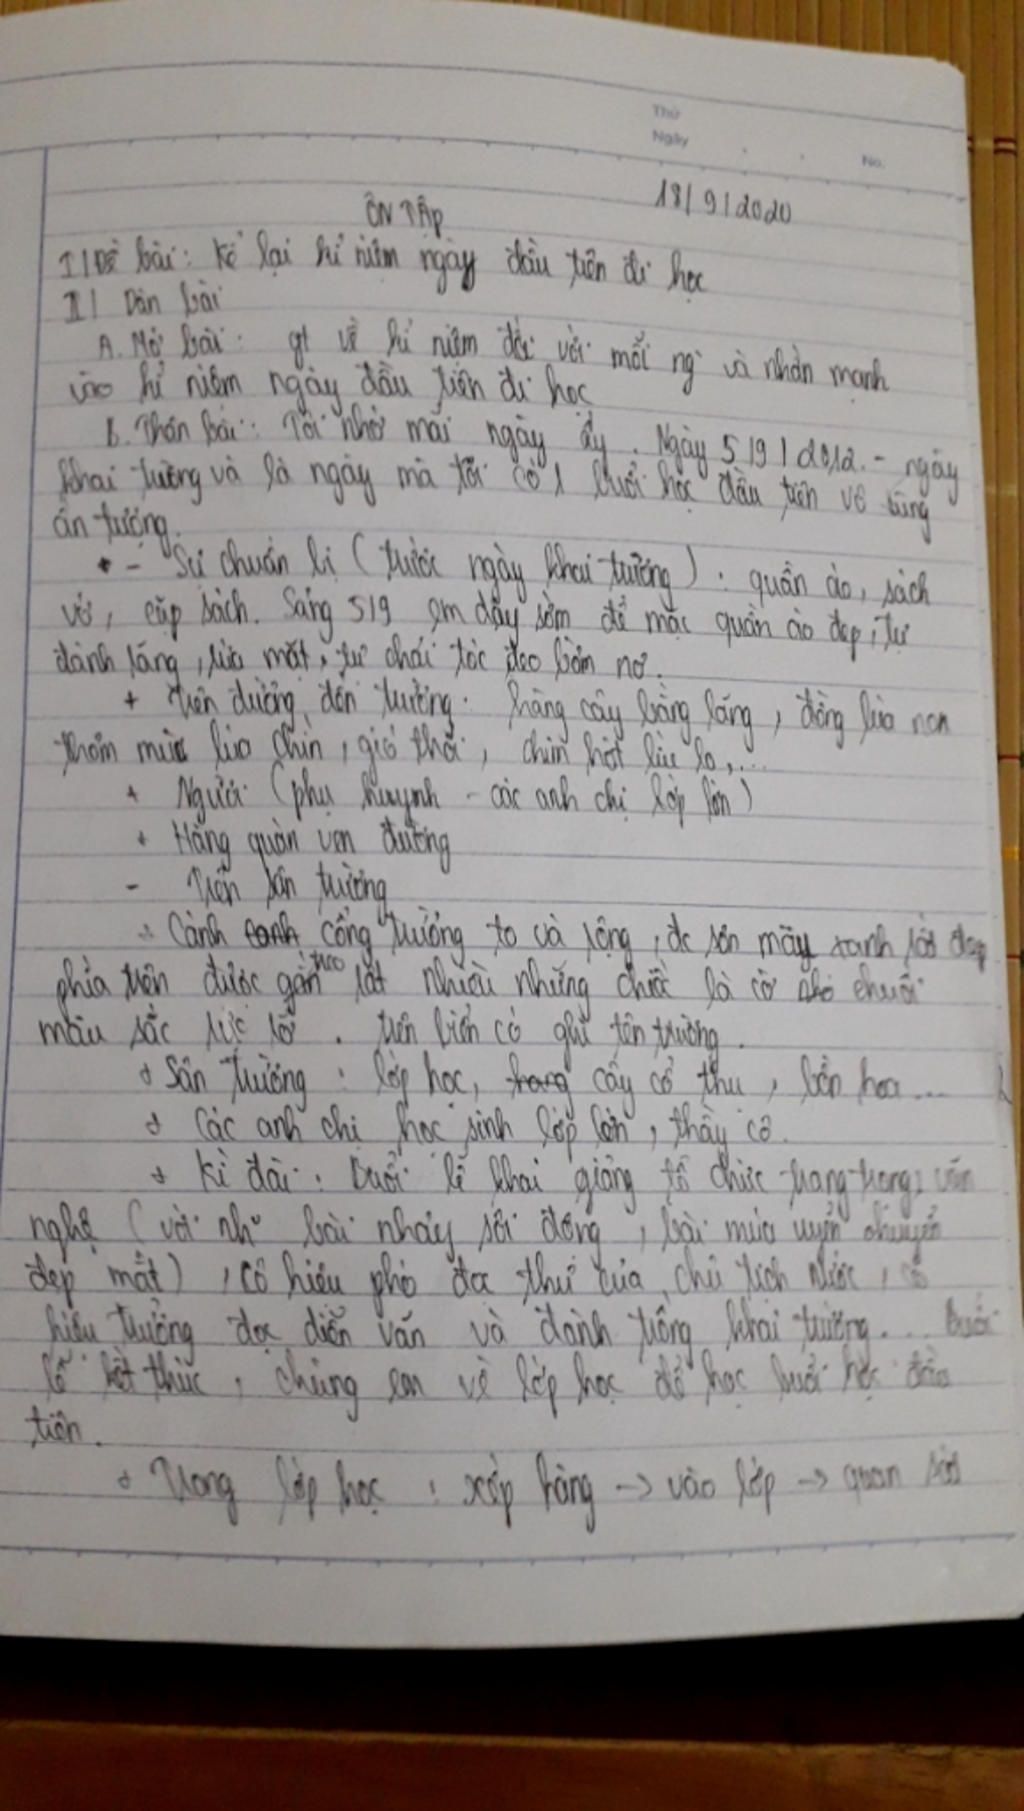 Thứ
Ngày
No.
18/9/2020
ÔN TẬP
I/ Đề bài: Kể lại kỉ niệm ngày đầu tiên đi học
II/ Dàn bài
A. Mở bài: gt về kỉ niệm đối với mỗi ng và nhấn mạnh
vào kỉ niệm ngày đầu tiên đi học
B. Thân bài: Tôi nhớ mãi ngày ấy. Ngày 5/9/2012 - ngày
khai trường và là ngày mà tôi có 1 buổi học đầu tiên vô cùng
ấn tượng.
- Sự chuẩn bị (trước ngày khai trường): quần áo, sách
vở, cặp sách. Sáng 5/9 em dậy sớm để mặc quần áo đẹp, tự
đánh răng, rửa mặt, tự chải tóc đeo bờm nơ.
+ Trên đường đến trường: hàng cây bằng lăng, đồng lúa non
thơm mùi lúa chín, gió thổi, chim hót líu lo,...
+ Người (phụ huynh - các anh chị lớp lớn)
+ Hàng quán ven đường
- Trên sân trường
+ Cảnh cổng trường to và rộng, đc sơn màu xanh rất đẹp
phía trên được gắn treo rất nhiều những chiếc lá cờ nhỏ chuối
màu sắc rực rỡ. Trên biển có ghi tên trường.
+ Sân trường: lớp học, hàng cây cổ thụ, bồn hoa...
+ Các anh chị học sinh lớp lớn, thầy cô.
+ Kì đài: Buổi lễ khai giảng tổ chức trang trọng, văn
nghệ (với nh~ bài nhảy sôi động, bài múa uyển chuyển
đẹp mắt), cô hiệu phó đọc thư của chủ tịch nước, cô
hiệu trưởng đọc diễn văn và đánh trống khai trường... Buổi
lễ kết thúc, chúng em về lớp học để học buổi học đầu
tiên.
+ Trong lớp học: xếp hàng -> vào lớp -> quan sát